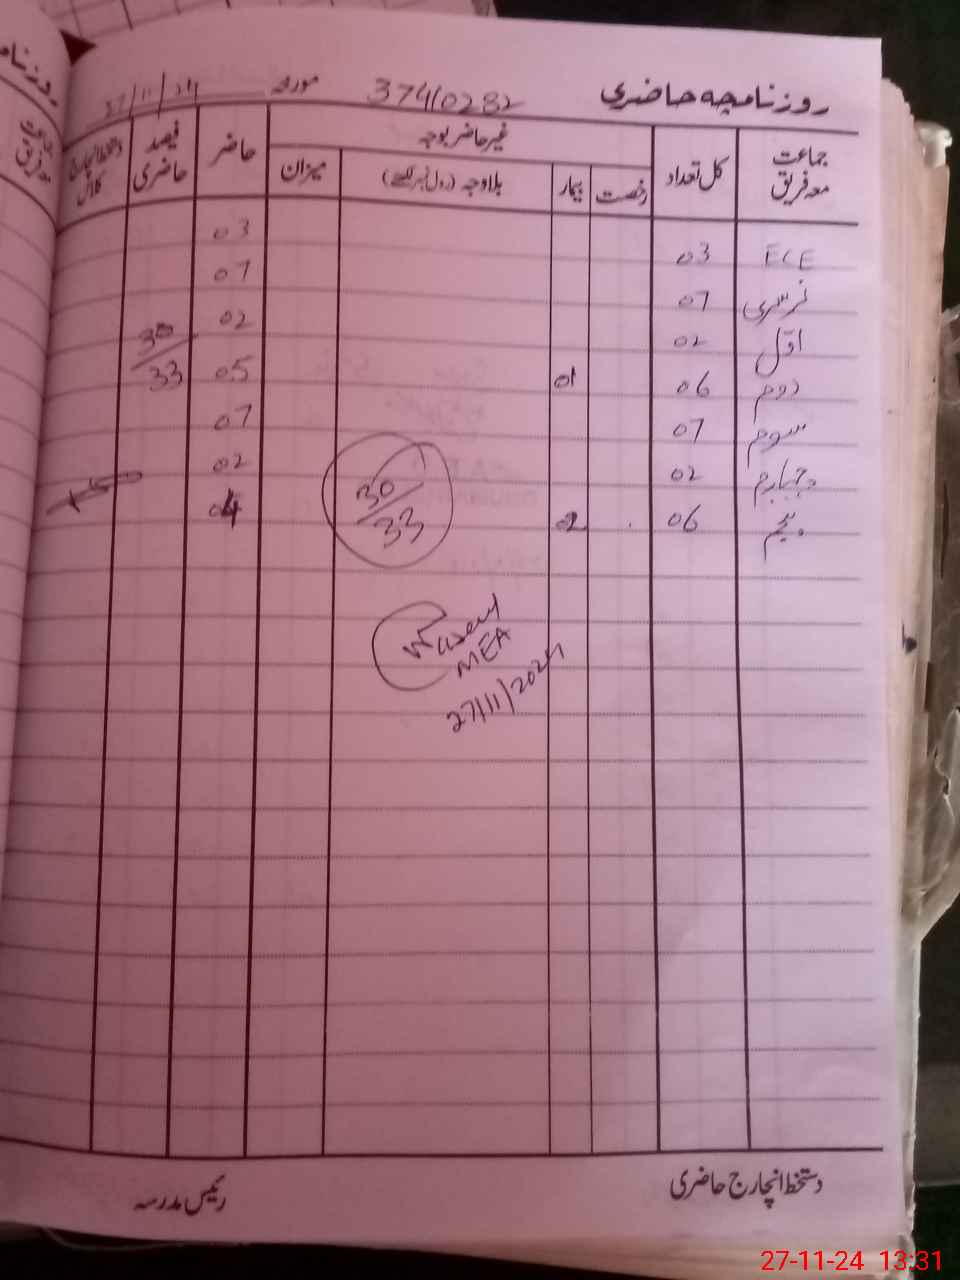 روزنامچہ حاضری 374/0282 مورخہ 27/11/24
جماعت معہ فریق کل تعداد غیر حاضر بوجہ حاضر فیصد حاضری دستخط انچارج کلاس
رخصت بیمار بلاوجہ (رول نمبر لکھیے) میزان
ECE 03 03
نرسری 07 07
اوّل 02 02
دوم 06 01 05 30/33
سوم 07 07
چہارم 02 02
پنجم 06 02 04
30/33
Waseem
MEA
27/11/2024
دستخط انچارج حاضری رئیس مدرسہ
27-11-24 13:31